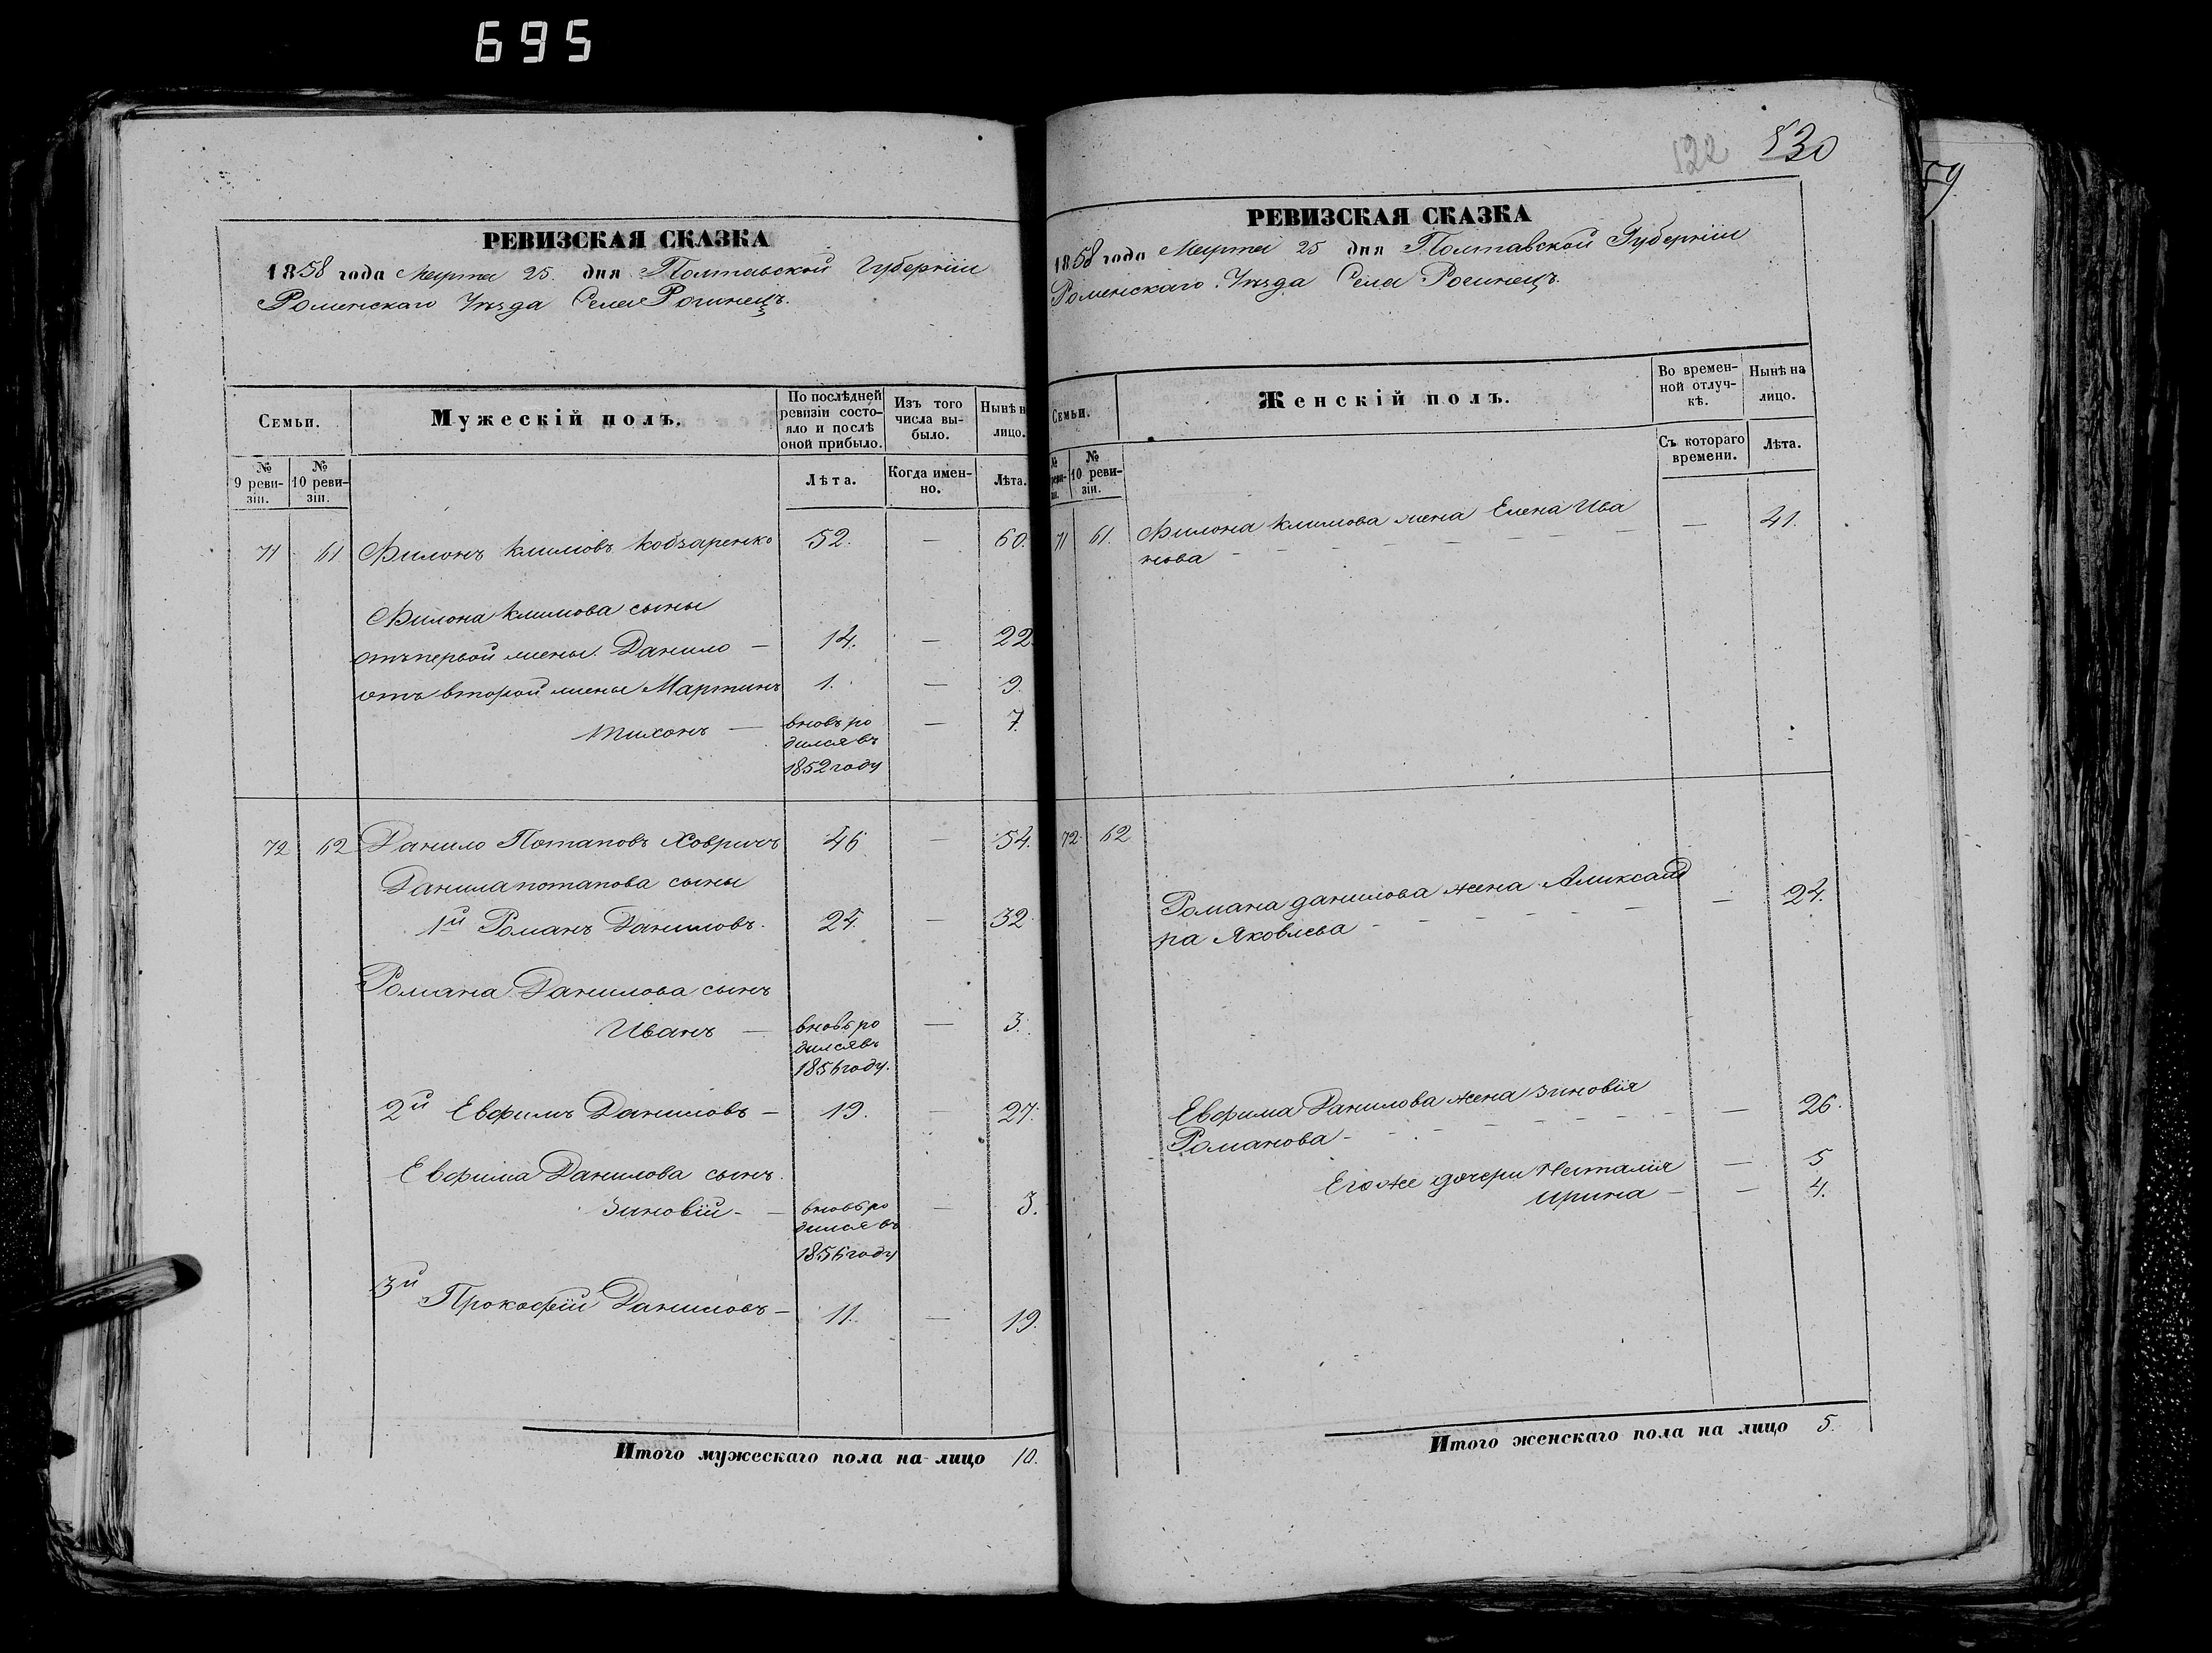 695
РЕВИЗСКАЯ СКАЗКА
1858 года Марта 25. дня Полтавской Губерніи
Роменскаго Уѣзда Села Рогинецъ.
Семьи.
Мужескій полъ.
По послѣдней ревизіи состояло и послѣ оной прибыло.
Изъ того числа выбыло.
Нынѣ н
лицо.
№ 9 ревизіи.
№ 10 ревизіи.
Лѣта.
Когда именно.
Лѣта.
71 61 Филонъ Климовъ Кобзаренко 52. — 60.
Филона Климова сыны
отъ первой жены. Данило — 14. — 22.
отъ второй жены Мартинъ 1. — 9.
Тихонъ — вновь ро — 7.
дился въ
1852 году
72 62 Данило Потаповъ Ховричъ 46 — 54.
Данила потапова сыны
1й Романъ Даниловъ. 24. — 32.
Романа Данилова сынъ
Иванъ — вновь ро — 3.
дился въ
1856 году.
2й Евфимъ Даниловъ — 19. — 27.
Евфима Данилова сынъ.
Зиновій — вновь ро — 3.
дился въ
1856 году
3й Прокофій Даниловъ — 11. — 19.
Итого мужескаго пола на лицо 10.
122 530
РЕВИЗСКАЯ СКАЗКА
1858 года Марта 25 дня Полтавской Губерніи
Роменскаго Уѣзда Села Рогинецъ.
Семьи.
Женскій полъ.
Во временной отлучкѣ.
Нынѣ на лицо.
№ 10 ревизіи.
Съ котораго времени.
Лѣта.
71 61. Филона Климова жена Елена Ива — 41.
нова
72. 62
Романа данилова жена Аликсанд — 24.
ра Яковлева
Евфима Данилова жена Зиновія — 26.
Романова
Его же дочери Наталія — 5
Ирина — — 4.
Итого женскаго пола на лицо 5.
59